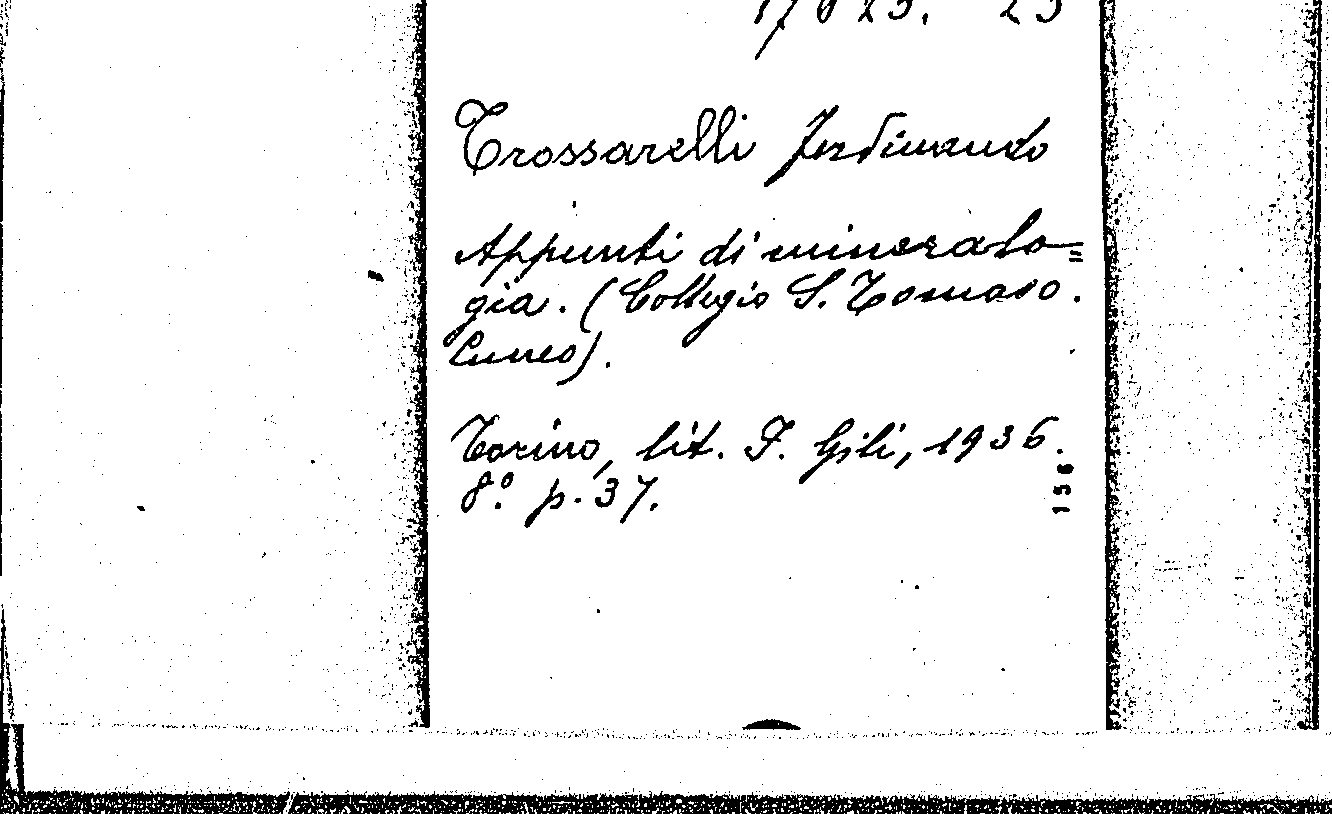 Trossarelli Ferdinando
Appunti di mineralo=
gia. (Collegio S. Tomaso.
Cuneo).
Torino, lit. F. Gili, 1936.
8.° p. 37.
156